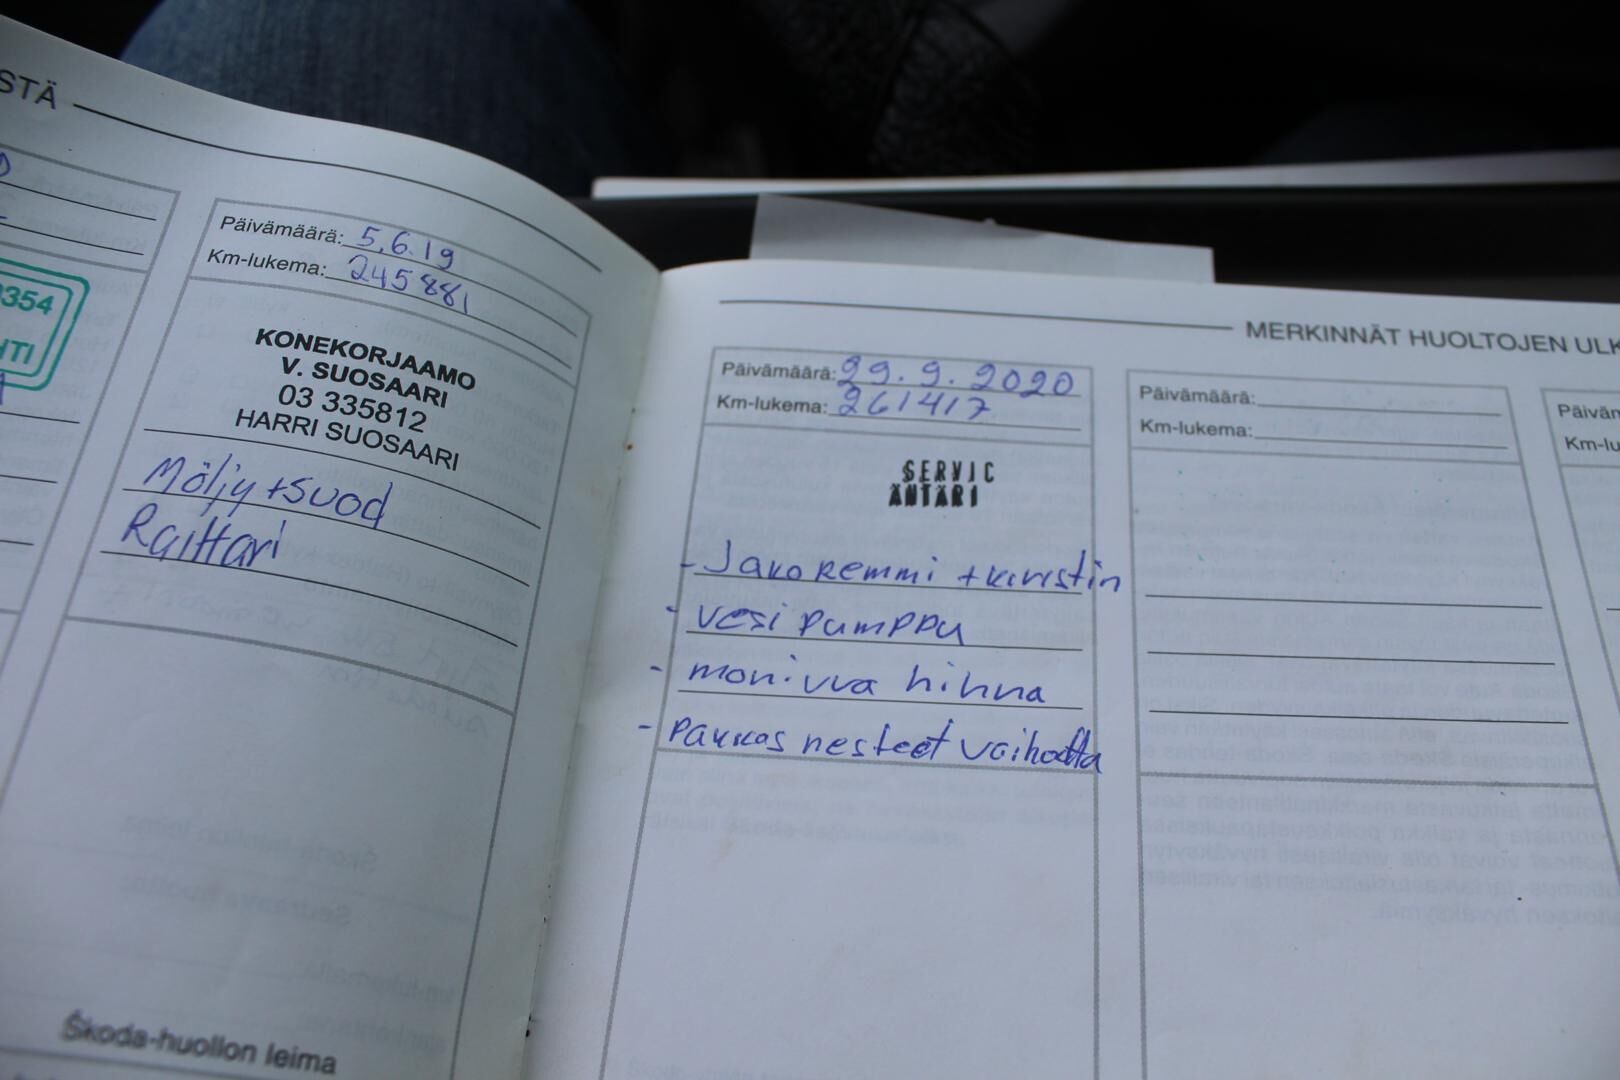 STÄ
354
HTI
Päivämäärä: 5.6.19
Km-lukema: 245881
KONEKORJAAMO
V. SUOSAARI
03 335812
HARRI SUOSAARI
Möljy+suod
Raittari
Škoda-huollon leima
MERKINNÄT HUOLTOJEN ULK
Päivämäärä: 29.9.2020
Km-lukema: 261417
SERVIC
ÄHTÄRI
- Jakoremmi + kiristin
- vesi pumppu
- moniura hihna
- pakkas nesteet vaihdettu
Päivämäärä:
Km-lukema:
Päiväm
Km-lu